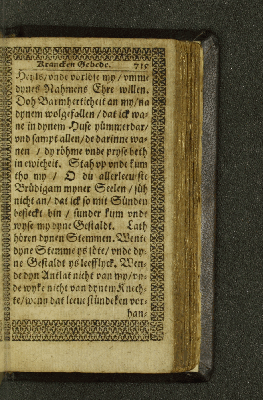 Krancken Gebede. 715
Heyls/vnde vorlöse my/vmme
dynes Nahmens Ehre willen.
Doh Barmherticheit an my/na
dynem wolgefallen/dat ick wa-
ne in dynem Huse ytimmerdar/
vnd sampt allen/de darinne wa-
nen/dy röhme vnde pryse beth
in ewicheit. Stah vp vnde kum
tho my/ O du allerleeueste
Brüdigam myner Seelen/süh
nicht an/dat ick so mit Sünden
befleckt bin/sunder kum vnde
wyse my dyne Gestaldt. Lath
hören dynen Stemmen. Wente
dyne Stemme ys söte/vnde dy-
ne Gestaldt ys leefflyck. Wen-
de dyn Antlat nicht van my/vn-
de wyke nicht van dynem Knech-
te/wenn dat leeue stündeken vor-
han-